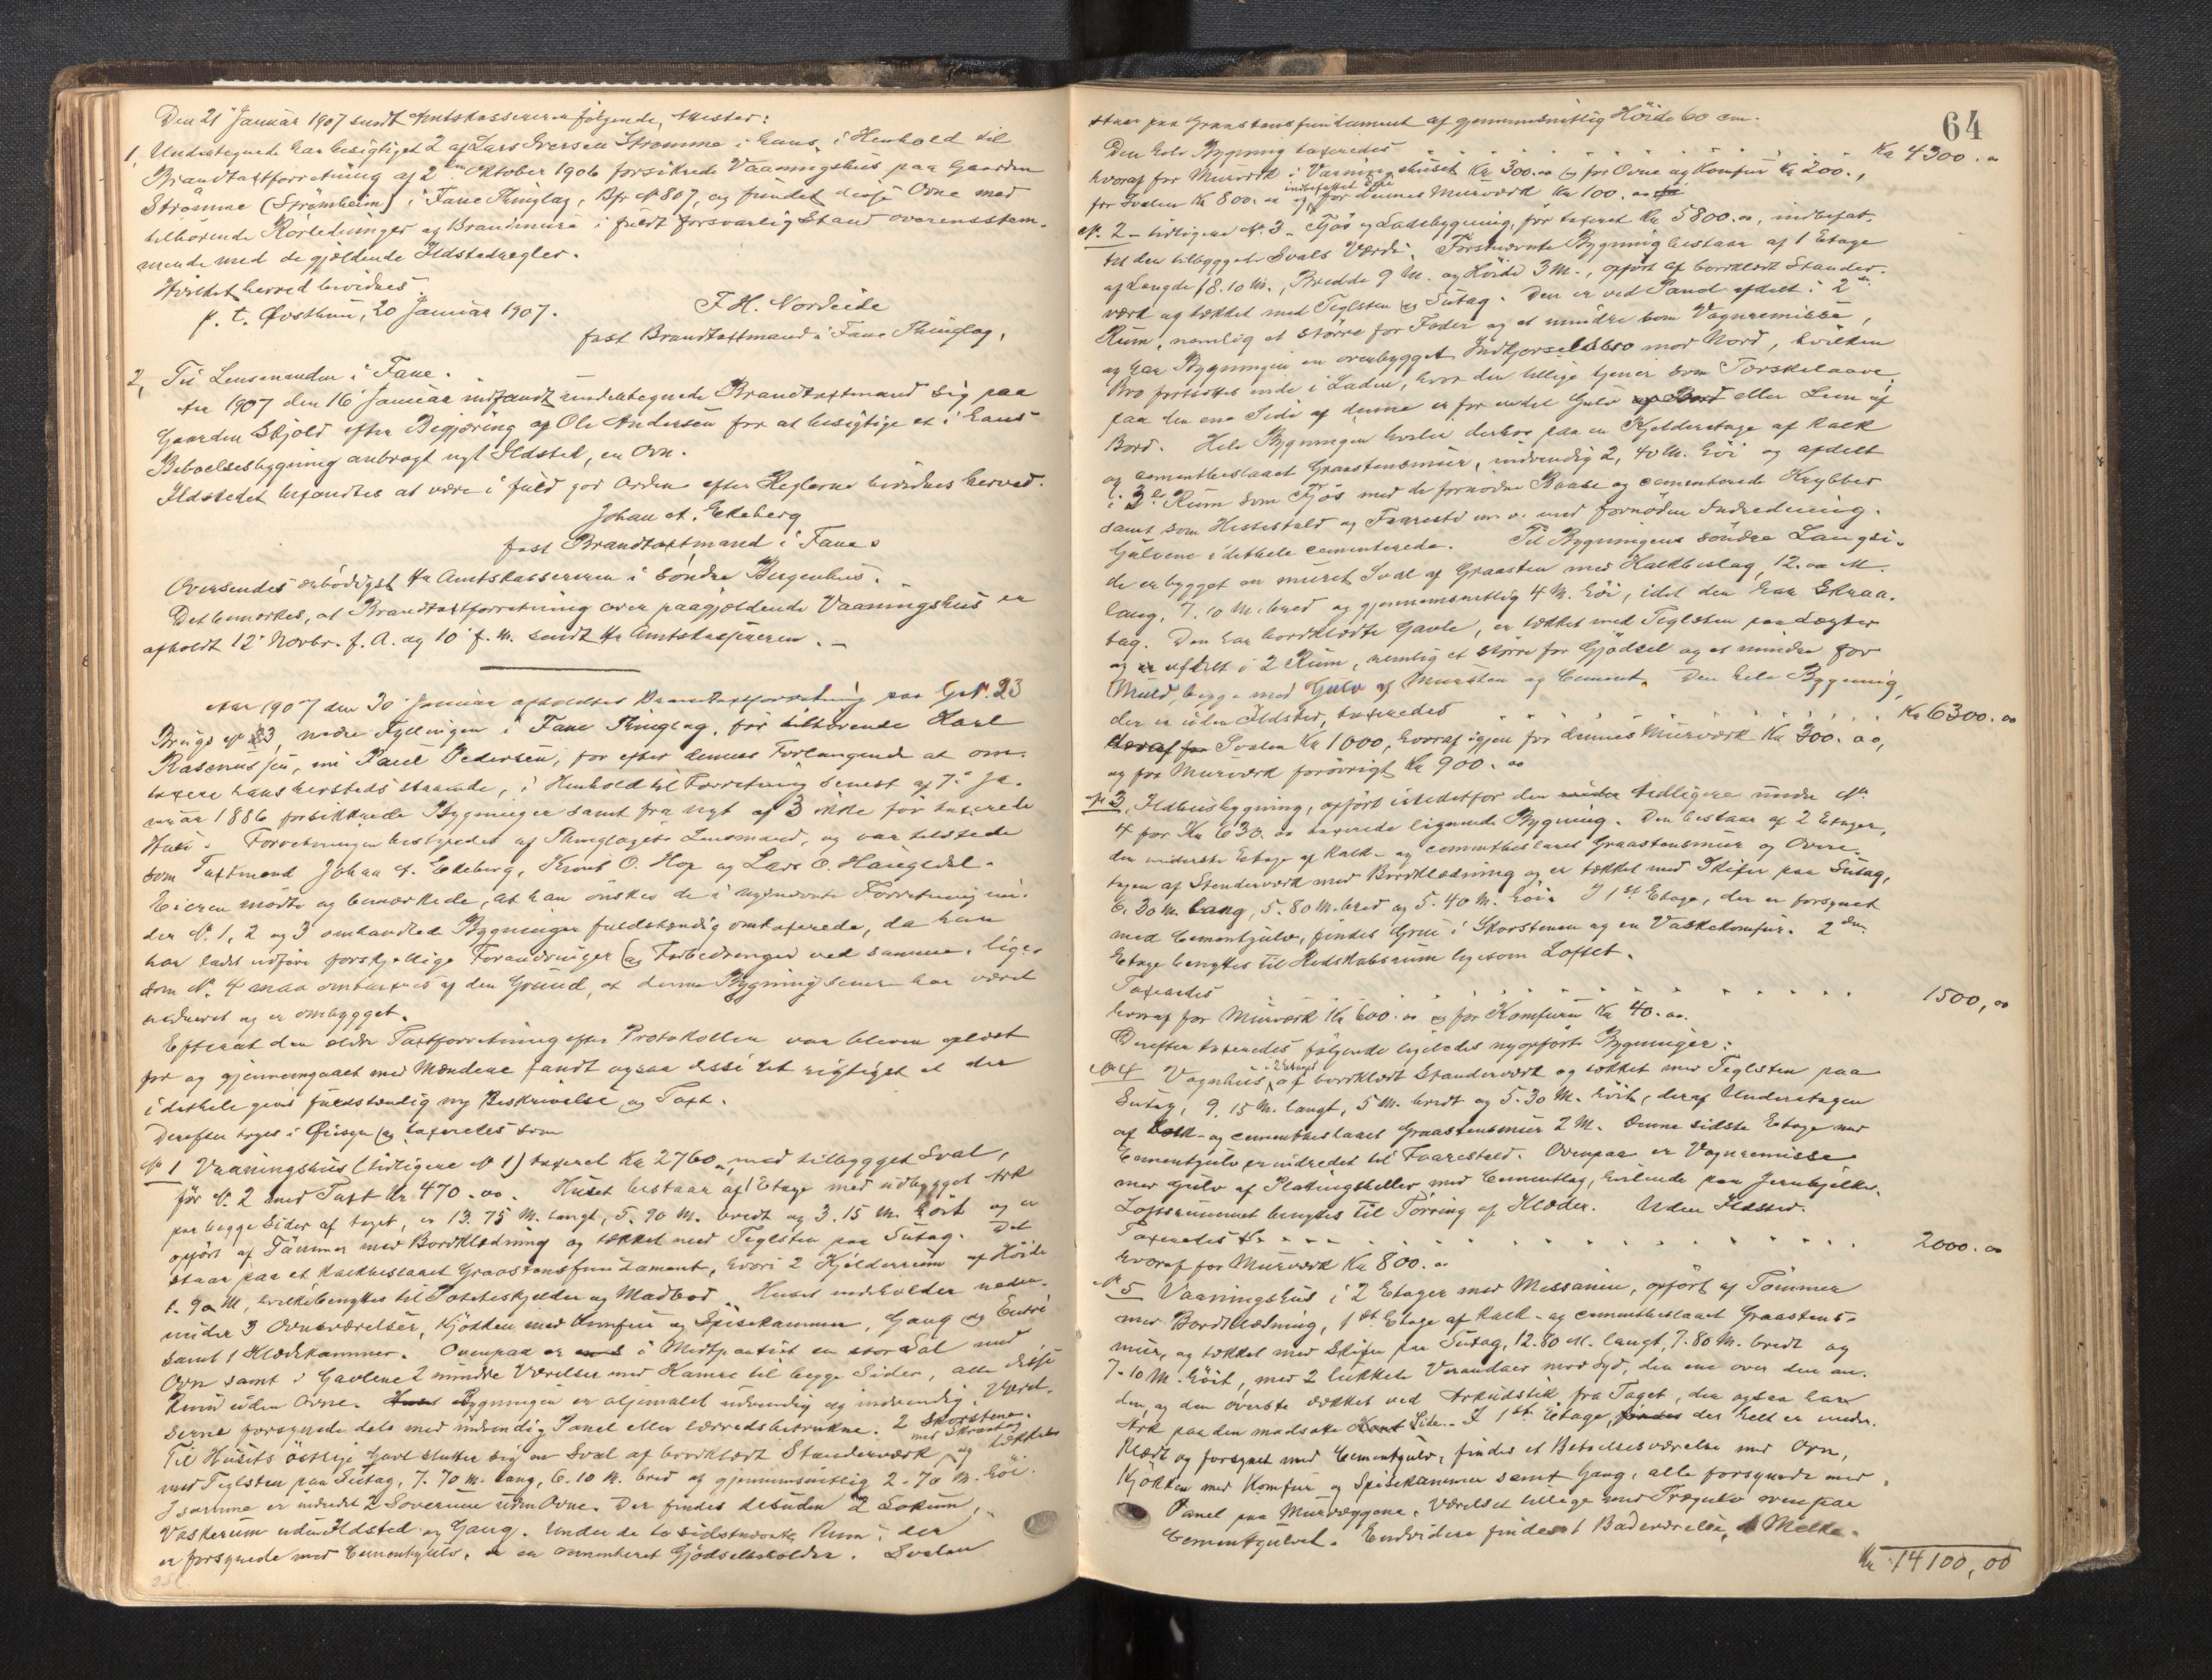 Den 21' Januar 1907 sendt Amtskassereren følgende Attester:
1, Undertegnede har besigtiget 2 af Lars Iversen Strømme i hans, i Henhold til
Brandtaxtforretning af 2den Oktober 1906 forsikrede Vaaningshus paa Gaarden
Strømme (Strømheim) i Fane Thinglag, Bf. № 807, og fundet disse Ovne med
tilhørende Rørledninger og Brandmure i fuldt forsvarlig Stand overensstem-
mende med de gjældende Ildstedregler.
Hvilket herved bevidnes.
p. t. Østhun, 20 Januar 1907.
T. H. Nordeide
fast Brandtaxtmand i Fane Thinglag.
2, Til Lensmanden i Fane.
Aar 1907 den 16' Januar indfandt undertegnede Brandtaxtmand sig paa
Gaarden Skjold efter Begjæring af Ole Andersen for at besigtige et i hans
Beboelsesbygning anbragt nyt Ildsted, en Ovn.
Ildstedet befandtes at være i fuld god Orden efter Reglerne bevidnes herved.
Johan A. Ekeberg
fast Brandtaxtmand i Fane.
Oversendes ærbødigst Hr Amtskassereren i Søndre Bergenhus.
Det bemærkes, at Brandtaxtforretning over paagjældende Vaaningshus er
afholdt 12' Novbr. f. A. og 10' f. M. sendt Hr Amtskassereren. -
Aar 1907 den 30' Januar afholdtes Brandtaxtforretning paa G.№. 23
Brugs № 3, nedre Fyllingen i Fane Thinglag, før tilhørende Karl
Rasmussen, nu Paul Pedersen, for efter dennes Forlangende at om-
taxere hans hersteds staaende, i Henhold til Forretning senest af 7' Ja-
nuar 1886 forsikkrede Bygninger samt fra nyt af 3 ikke før taxerede
Huse. Forretningen bestyredes af Thinglagets Lensmand, og var tilstede
som Taxtmænd Johan A. Ekeberg, Knut O. Hop og Lars O. Haugsdal.
Eieren mødte og bemærkede, at han ønsker de i nysnævnte Forretning un-
der № 1, 2 og 3 omhandlede Bygninger fuldstændig omtaxerede, da han
har ladet udføre forskjellige Forandringer og Forbedringer ved samme, lige-
som № 4 maa omtaxeres af den Grund, at denne Bygning senere har været
nedrevet og er ombygget.
Efterat den ældre Taxtforretning efter Protokollen var bleven oplæst
for og gjennemgaaet med Mændene fandt ogsaa disse det rigtigst at der
i dethele gives fuldstændig ny Beskrivelse og Taxt.
Derefter toges i Øiesyn og taxeredes som
№ 1 Vaaningshus (tidligere № 1) taxeret Kr. 2760, med tilbygget Sval,
før № 2 med Taxt Kr 470.00. Huset bestaar af 1 Etage med udbygget Ark
paa begge Sider af taget, er 13.75 M. langt, 5.90 M. bredt og 3.15 M. høit og er
opført af Tømmer med Bordklædning og tækket med Teglsten paa Sutag. Det
staar paa et kalkbeslaaet Graastensfundament, hvori 2 Kjelderrum af Høide
1.90 M, hvilke benyttes til Potetkjelder og Madbod. Huset indeholder neden-
under 3 Ovnsværelser, Kjøkken med Komfur og Spisekammer, Gang og Entré
samt 1 Klædekammer. Ovenpaa er i Midtpartiet en stor Sal med
Ovn samt i Gavlene 2 mindre Værelser med Hamre til begge Sider, alle disse
Rum uden Ovne. Bygningen er oljemalet udvendig og indvendig. Værel-
serne forsynede dels med indvendig Panel eller lærredsbetrukne. 2 Skorstene.
Til Husets østlige Gavl slutter sig en Sval af bordklædt Standerværk med Skraatag og tækket
med Teglsten paa Sutag, 7.70 M. lang, 6.10 M. bred og gjennemsnitlig 2.70 M. høi.
I samme er indredet 2 Soverum uden Ovne. Der findes desuden 2 Lokum,
Vaskerum uden Ildsted og Gang. Under de to sidstnævnte Rum, der
er forsynede med Cementgulv, er en cementeret Gjødselbeholder. Svalen
64
staar paa Graastensfundament af gjennemsnitlig Høide 60 cm.
Den hele Bygning taxeredes . . . . . . . . Kr 4300.00
hvoraf for Murværk i Vaaningshuset Kr 300.00 og for Ovne og Komfur Kr 200.,
for Svalen Kr 800.00 indbefattet og for dennes Murværk Kr 100.00
№ 2 - tidligere № 3 - Fjøs og Ladebygning, før taxeret Kr 5800.00, indbefat-
tet den tilbyggede Svals Værdi. Førstnævnte Bygning bestaar af 1 Etage
af Længde 18.10 M., Bredde 9 M. og Høide 3 M., opført af bordklædt Stander-
værk og tækket med Teglsten og Sutag. Den er ved Pand afdelt i 2de
Rum, nemlig et større for Foder og et mindre som Vognremisse,
og har Bygningen en overbygget Indkjørselsbro mod Nord, hvilken
Bro fortsættes inde i Laden, hvor den tillige tjener som Torskelaave,
paa den ene Side af denne er for endel Gulv eller Lem af
Bord. Hele Bygningen hviler derhos paa en Kjelderetage af kalk
og cementbeslaaet Graastensmur, indvendig 2,40 M. høi og afdelt
i 3de Rum som Fjøs med de fornødne Baase og cementerede Krybber
samt som Hestestald og Faaresti m. v. med fornøden Indredning.
Gulvene i dethele cementerede. Til Bygningens søndre Langsi-
de er bygget en muret Sval af Graasten med Kalkbeslag, 12.00 M.
lang, 7.10 M. bred og gjennemsnitlig 4 M. høi, idet den har Skraa-
tag. Den har bordklædte Gavle, er tækket med Teglsten paa Lægter
og er afdelt i 2 Rum, nemlig et større for Gjødsel og et mindre for
Muld, begge med Gulv af Mursten og Cement. Den hele Bygning,
der er uden Ildsted, taxeredes . . . . . . . . Kr 6300.00
deraf for Svalen Kr 1000, hvoraf igjen for dennes Murværk Kr 300.00,
og for Murværk forøvrigt Kr 900.00
№ 3, Ildhusbygning, opført istedetfor den tidligere under №
4 for Kr 630.00 taxerede lignende Bygning. Den bestaar af 2 Etager,
den underste Etage af Kalk- og cementbeslaaet Graastensmur og Overe-
tagen af Standerværk med Bordklædning og er tækket med Skifer paa Sutag,
6.30 M. lang, 5.80 M. bred og 5.40 M. høi. I 1st Etage, der er forsynet
med Cementgulv, findes Grue i Skorstenen og en Vaskekomfur. 2den
Etage benyttes til Redskabsrum ligesom Loftet.
Taxeredes . . . . . . . . . . . . 1500,00
hvoraf for Murværk Kr 600.00 og for Komfuren Kr 40.00.
Derefter taxeredes følgende ligeledes nyopførte Bygninger:
№ 4 Vognhus, i 2 Etager af bordklædt Standerværk og tækket med Teglsten paa
Sutag, 9.15 M. langt, 5 M. bredt og 5.30 M. høit, deraf Underetagen
af Kalk- og cementbeslaaet Graastensmur 2 M. Denne sidste Etage med
Cementgulv er indredet til Faarestald. Ovenpaa er Vognremisse
med Gulv af Platingsheller med Cementlag, hvilende paa Jernbjelker.
Loftsrummet benyttes til Tørring af Klæder. Uden Ildsted.
Taxeredes Kr . . . . . . . . . . . . 2000.00
hvoraf for Murværk Kr 800.00
№ 5 Vaaningshus i 2 Etager med Messanin, opført af Tømmer
med Bordklædning, 1st Etage af kalk- og cementbeslaaet Graastens-
mur, og tækket med Skifer paa Sutag, 12.80 M. langt, 7.80 M. bredt og
7.10 M. høit, med 2 lukkede Verandaer mod Syd, den ene over den an-
den, og den øverste dækket ved Arkudstik fra Taget, der ogsaa har
Ark paa den modsatte Side. I 1st Etage, der helt er under-
klædt og forsynet med Cementgulv, findes et Beboelsesværelse med Ovn,
Kjøkken med Komfur og Spisekammer samt Gang, alle forsynede med
Panel paa Murvæggene. Værelset tillige med Trægulv ovenpaa
Cementgulvet. Endvidere findes 1 Badeværelse, 1 Melke-
Kr. 14100,00